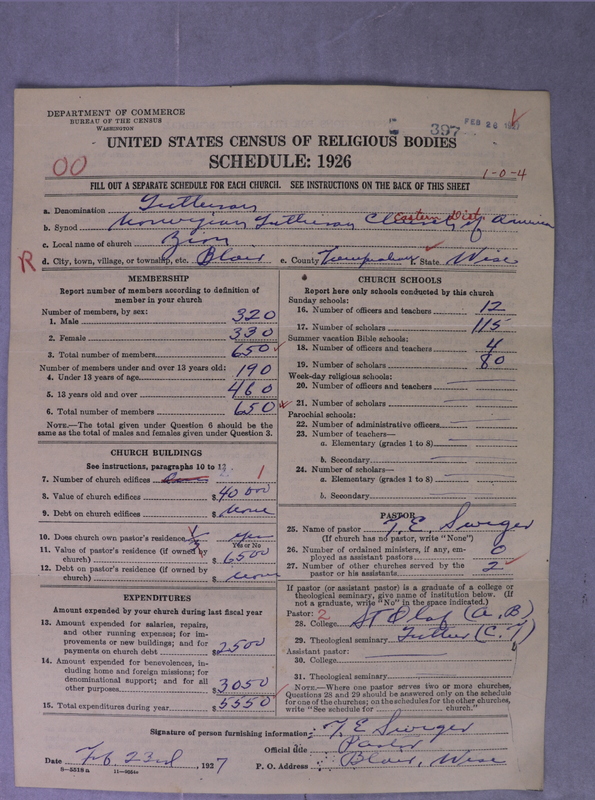 DEPARTMENT OF COMMERCE
BUREAU OF THE CENSUS
WASHINGTON
397 FEB 26 1927
UNITED STATES CENSUS OF RELIGIOUS BODIES
SCHEDULE: 1926
00
1-0-4
FILL OUT A SEPARATE SCHEDULE FOR EACH CHURCH. SEE INSTRUCTIONS ON THE BACK OF THIS SHEET
a. Denomination Lutheran
Eastern Dist
b. Synod Norwegian Lutheran Church of America
c. Local name of church Zion
R d. City, town, village, or township, etc. Blair e. County Trempealeau f. State Wisc
MEMBERSHIP
Report number of members according to definition of
member in your church
Number of members, by sex:
1. Male 320
2. Female 330
3. Total number of members 650
Number of members under and over 13 years old:
4. Under 13 years of age 190
5. 13 years old and over 460
6. Total number of members 650
NOTE.—The total given under Question 6 should be the
same as the total of males and females given under Question 3.
CHURCH BUILDINGS
See instructions, paragraphs 10 to 12
7. Number of church edifices 1
8. Value of church edifices $40000
9. Debt on church edifices $None
10. Does church own pastor's residence? Yes
Yes or No
11. Value of pastor's residence (if owned by
church) $6500
12. Debt on pastor's residence (if owned by
church) $None
EXPENDITURES
Amount expended by your church during last fiscal year
13. Amount expended for salaries, repairs,
and other running expenses; for im-
provements or new buildings; and for
payments on church debt $2500
14. Amount expended for benevolences, in-
cluding home and foreign missions; for
denominational support; and for all
other purposes $3050
15. Total expenditures during year $5550
CHURCH SCHOOLS
Report here only schools conducted by this church
Sunday schools:
16. Number of officers and teachers 12
17. Number of scholars 115
Summer vacation Bible schools:
18. Number of officers and teachers 4
19. Number of scholars 80
Week-day religious schools:
20. Number of officers and teachers
21. Number of scholars
Parochial schools:
22. Number of administrative officers
23. Number of teachers—
a. Elementary (grades 1 to 8)
b. Secondary
24. Number of scholars—
a. Elementary (grades 1 to 8)
b. Secondary
PASTOR
25. Name of pastor T. E. Sweger
(If church has no pastor, write "None")
26. Number of ordained ministers, if any, em-
ployed as assistant pastors 0
27. Number of other churches served by the
pastor or his assistants 2
If pastor (or assistant pastor) is a graduate of a college or
theological seminary, give name of institution below. (If
not a graduate, write "No" in the space indicated.)
Pastor: 2
28. College St Olaf (A. B)
29. Theological seminary Luther (C. T)
Assistant pastor:
30. College
31. Theological seminary
NOTE.—Where one pastor serves two or more churches,
Questions 28 and 29 should be answered only on the schedule
for one of the churches; on the schedules for the other churches,
write "See schedule for church."
Signature of person furnishing information T. E. Sweger
Official title Pastor
Date Feb 23rd, 1927 P. O. Address Blair, Wisc
8—5518 a